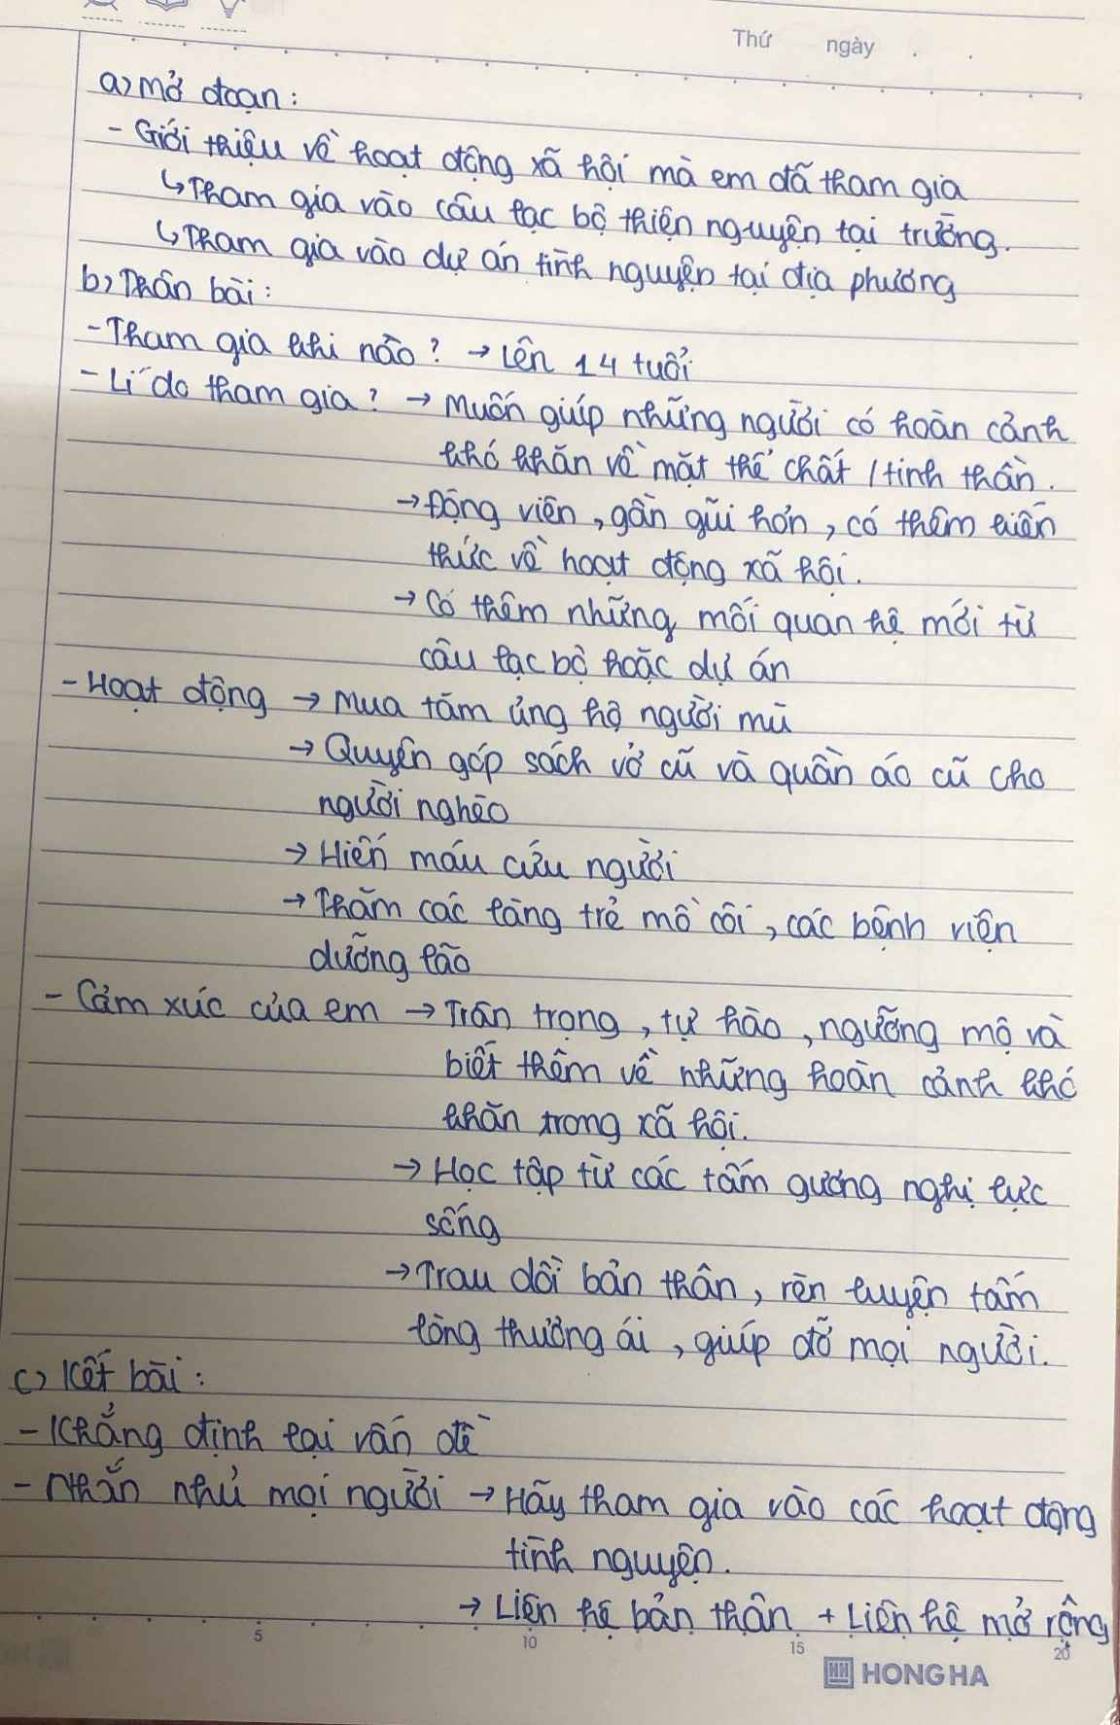 Thứ ngày . .
a) Mở đoạn:
- Giới thiệu về hoạt động xã hội mà em đã tham gia
↳ Tham gia vào câu lạc bộ thiện nguyện tại trường.
↳ Tham gia vào dự án tình nguyện tại địa phương
b) Thân bài:
- Tham gia khi nào? → Lên 14 tuổi
- Lí do tham gia? → Muốn giúp những người có hoàn cảnh
khó khăn về mặt thể chất / tinh thần.
→ Động viên, gần gũi hơn, có thêm kiến
thức về hoạt động xã hội.
→ Có thêm những mối quan hệ mới từ
câu lạc bộ hoặc dự án
- Hoạt động → Mua tăm ủng hộ người mù
→ Quyên góp sách vở cũ và quần áo cũ cho
người nghèo
→ Hiến máu cứu người
→ Thăm các làng trẻ mồ côi, các bệnh viện
dưỡng lão
- Cảm xúc của em → Trân trọng, tự hào, ngưỡng mộ và
biết thêm về những hoàn cảnh khó
khăn trong xã hội.
→ Học tập từ các tấm gương nghị lực
sống
→ Trau dồi bản thân, rèn luyện tấm
lòng thương ái, giúp đỡ mọi người.
c) Kết bài:
- Khẳng định lại vấn đề
- Nhắn nhủ mọi người → Hãy tham gia vào các hoạt động
tình nguyện.
→ Liên hệ bản thân + Liên hệ mở rộng
5 10 15 20
HONG HA